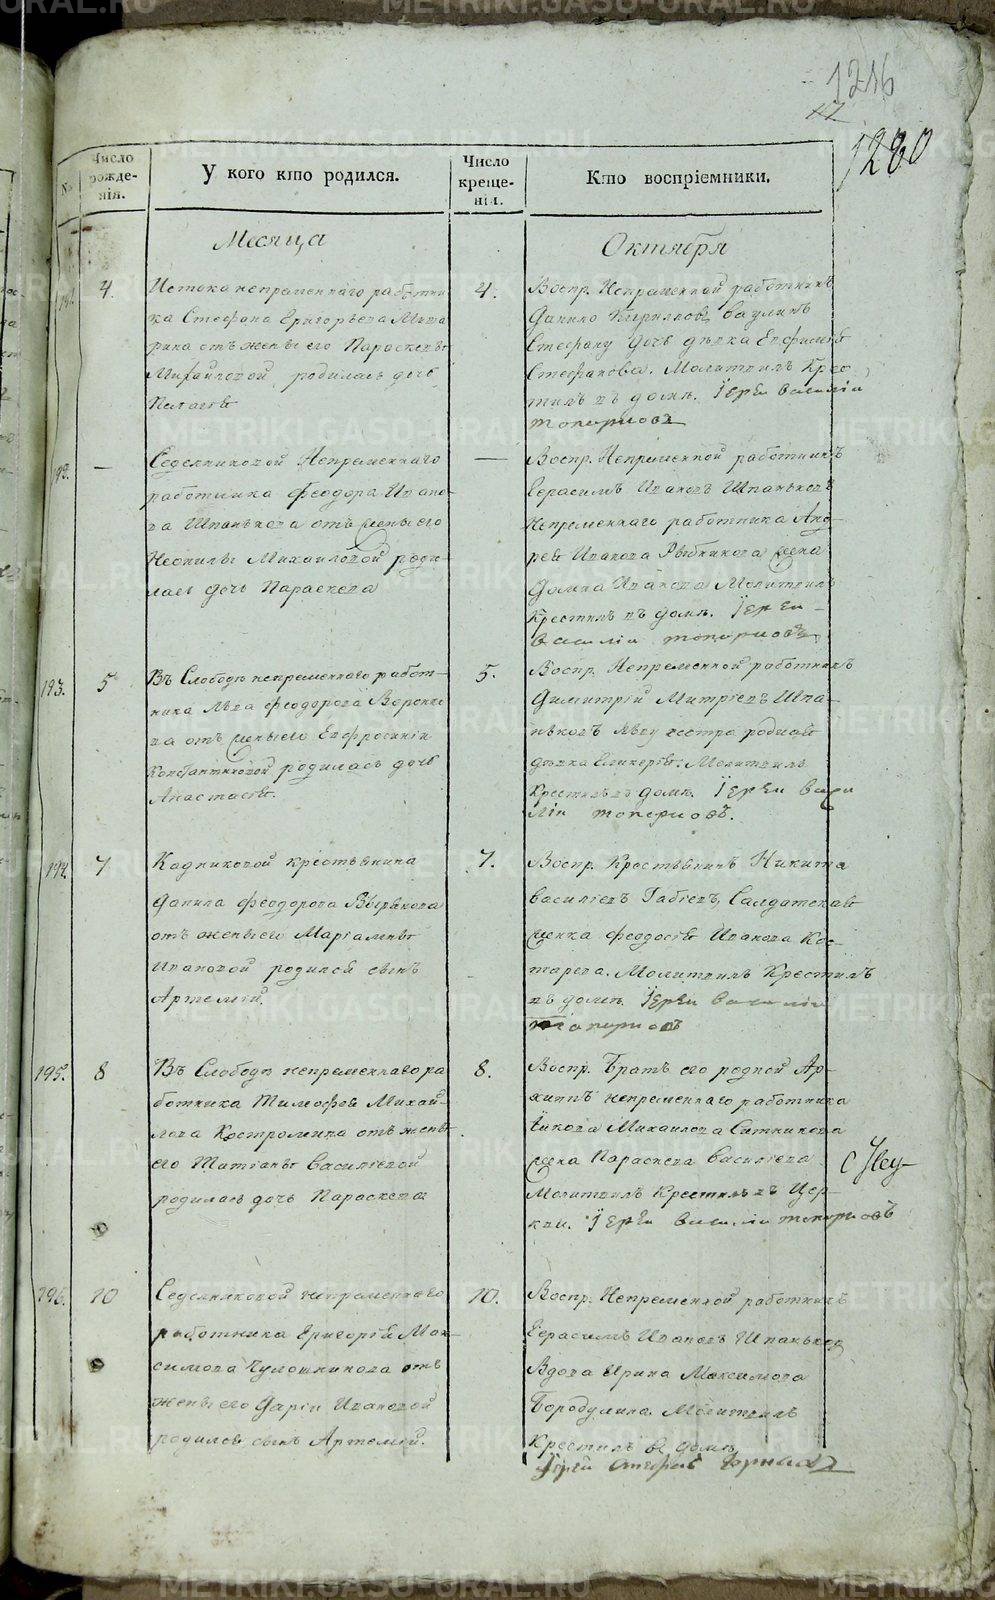 1216
17
1280
№
Число рожденія.
У кого кто родился.
Число крещенія.
Кто воспріемники.
Месяца
Октября
191.
4.
Истока непременнаго работни
ка Стефана Григорьева Миха
рика отъ жены его Параскевы
Михайловой, родилась дочь
Пелагея
4.
Воспр. Непременной работникъ
Данило Кириловъ Ваулинъ
Стефану дочь дѣвка Евфимея
Стефанова. Молитвилъ Крес
тилъ въ домѣ. Іерей василіи
топорковъ
192.
—
Седелниковой Непременнаго
работника Феодора Ивано
ва Шпанькова отъ жены его
Неонилы Михаиловой роди
лась дочь Параскева
—
Воспр. Непременной работникъ
Герасимъ Ивановъ Шпаньковъ
непременнаго работника Анд
рея Иванова Рыбникова жена
Домна Иванова Молитвилъ
Крестилъ въ домѣ. Іерей
василіи топорковъ
193.
5
Въ Слободѣ непременнаго работ-
ника Льва Феодорова Воронко
ва отъ жены его Евфросиніи
Константиновой родилась дочь
Анастасея.
5.
Воспр. Непременной работникъ
Димитрій Митріевъ Шпа-
ньковъ Льву сестра родная
дѣвка Гликерея. Молитвилъ
Крестилъ въ домѣ. Іерей васи
ліи топорковъ.
194.
7
Кадниковой крестьянина
Данила Феодорова Вбрякова
отъ жены его Маріамны
Ивановой родился сынъ
Артемій.
7.
Воспр. Крестьянинъ Никита
Василіевъ Габіевъ, Салдатская
женка Феодосья Иванова Кос-
тарева. Молитвилъ Крестилъ
въ домѣ Іерей василіи
топорковъ
195.
8
Въ Слободѣ непременнаго ра
ботника Тимофей Михай-
лова Костромина отъ жены
его Татіаны Василіевой
родилась дочь Параскева
8.
Воспр. Братъ его родной Ар-
хипъ непременнаго работника
Іакова Михаилова Ситникова
жена Параскева Василіева
Молитвилъ Крестилъ въ Цер-
кви. Іерей василіи топорковъ
196.
10
Седелниковой непременнаго
работника Григорій Мак-
симова Чулошникова отъ
жены его Даріи Ивановой
родился сынъ Артемій.
10.
Воспр. Непременной работникъ
Герасимъ Ивановъ Шпаньков
Вдова Ирина Максимова
Бородулина. Молитвилъ
Крестилъ в домѣ
Іерей Стефан
METRIKI.GASO-URAL.RU